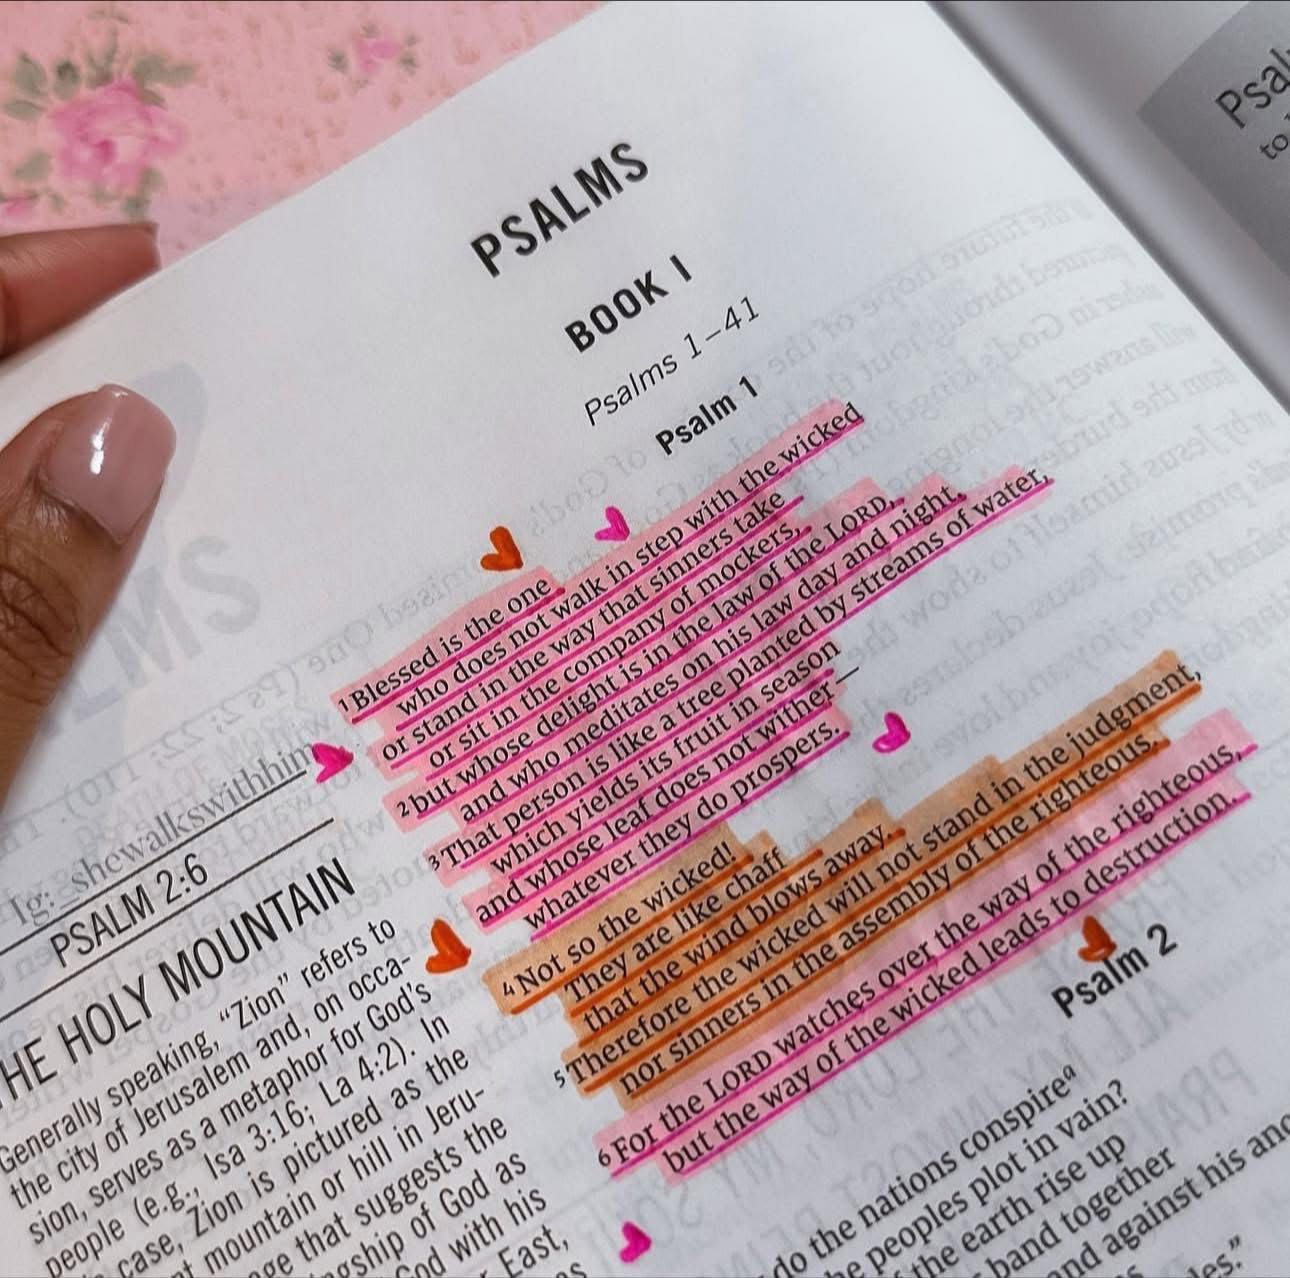 PSALMS
BOOK I
Psalms 1–41
Psalm 1
1 Blessed is the one
who does not walk in step with the wicked
or stand in the way that sinners take
or sit in the company of mockers,
2 but whose delight is in the law of the LORD,
and who meditates on his law day and night.
3 That person is like a tree planted by streams of water,
which yields its fruit in season
and whose leaf does not wither—
whatever they do prospers.
4 Not so the wicked!
They are like chaff
that the wind blows away.
5 Therefore the wicked will not stand in the judgment,
nor sinners in the assembly of the righteous.
6 For the LORD watches over the way of the righteous,
but the way of the wicked leads to destruction.
Psalm 2
do the nations conspire a
peoples plot in vain?
the earth rise up
band together
and against his
Ig: _shewalkswithhim
PSALM 2:6
THE HOLY MOUNTAIN
Generally speaking, “Zion” refers to
the city of Jerusalem and, on occa-
sion, serves as a metaphor for God's
people (e.g., Isa 3:16; La 4:2). In
case, Zion is pictured as the
mountain or hill in Jeru-
that suggests the
of God as
with his
East,
Psal
to